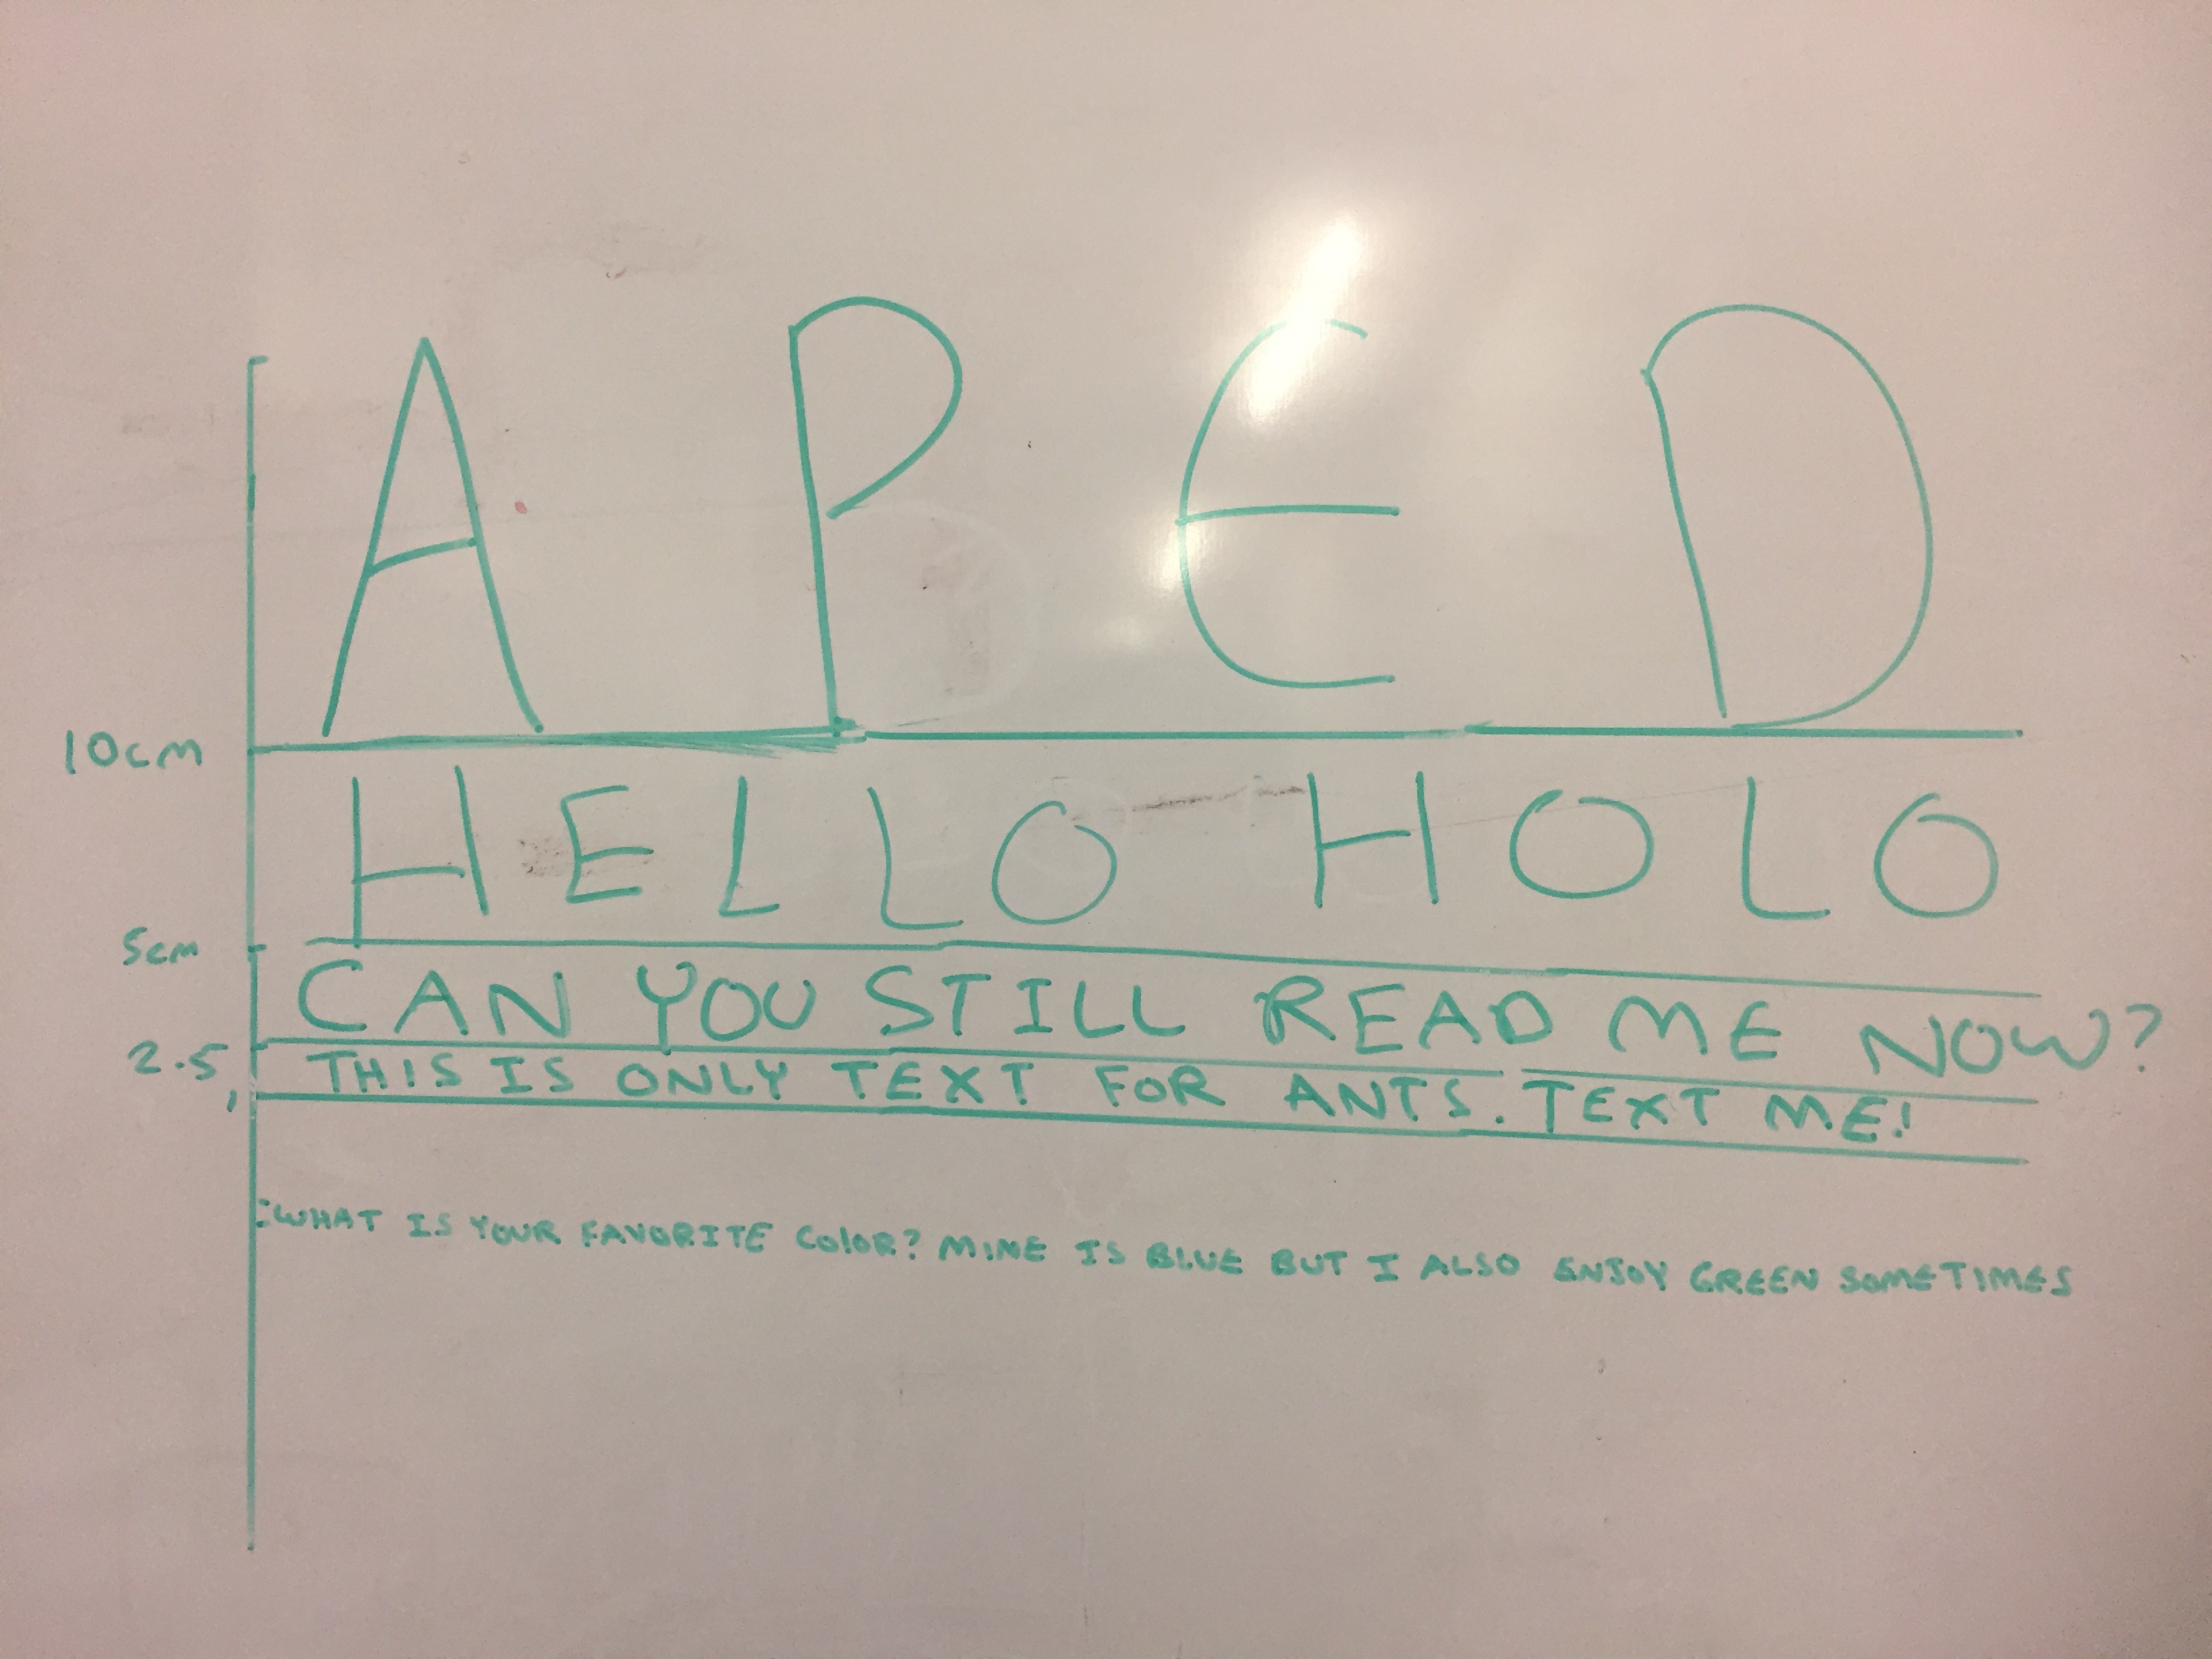 A P E D
10cm
HELLO HOLO
5cm
CAN YOU STILL READ ME NOW?
2.5
THIS IS ONLY TEXT FOR ANTS. TEXT ME!
1
WHAT IS YOUR FAVORITE COlOR? MINE IS BLUE BUT I ALSO ENJOY GREEN SOMETIMES